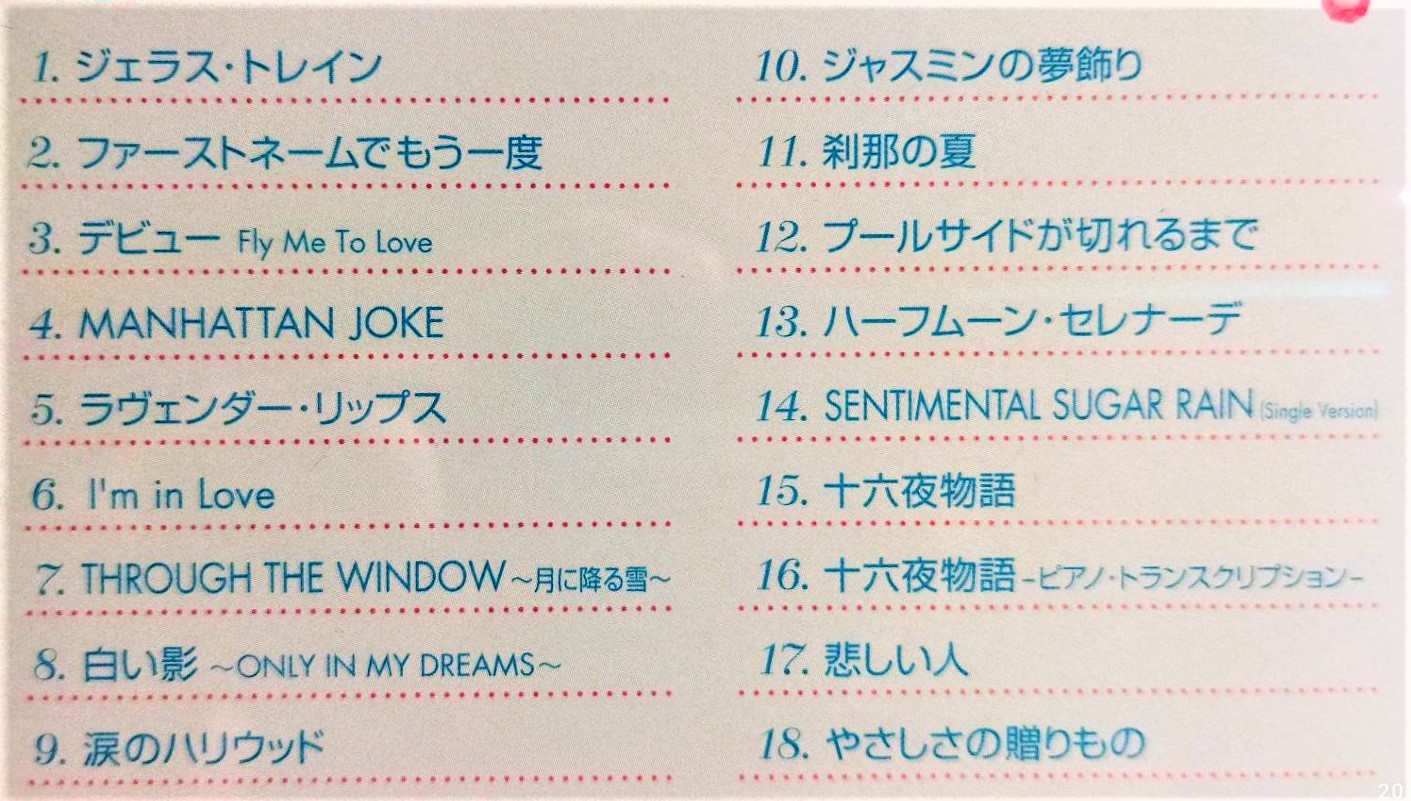 1. ジェラス・トレイン
2. ファーストネームでもう一度
3. デビュー Fly Me To Love
4. MANHATTAN JOKE
5. ラヴェンダー・リップス
6. I'm in Love
7. THROUGH THE WINDOW～月に降る雪～
8. 白い影 ～ONLY IN MY DREAMS～
9. 涙のハリウッド
10. ジャスミンの夢飾り
11. 刹那の夏
12. プールサイドが切れるまで
13. ハーフムーン・セレナーデ
14. SENTIMENTAL SUGAR RAIN (Single Version)
15. 十六夜物語
16. 十六夜物語-ピアノ・トランスクリプション-
17. 悲しい人
18. やさしさの贈りもの